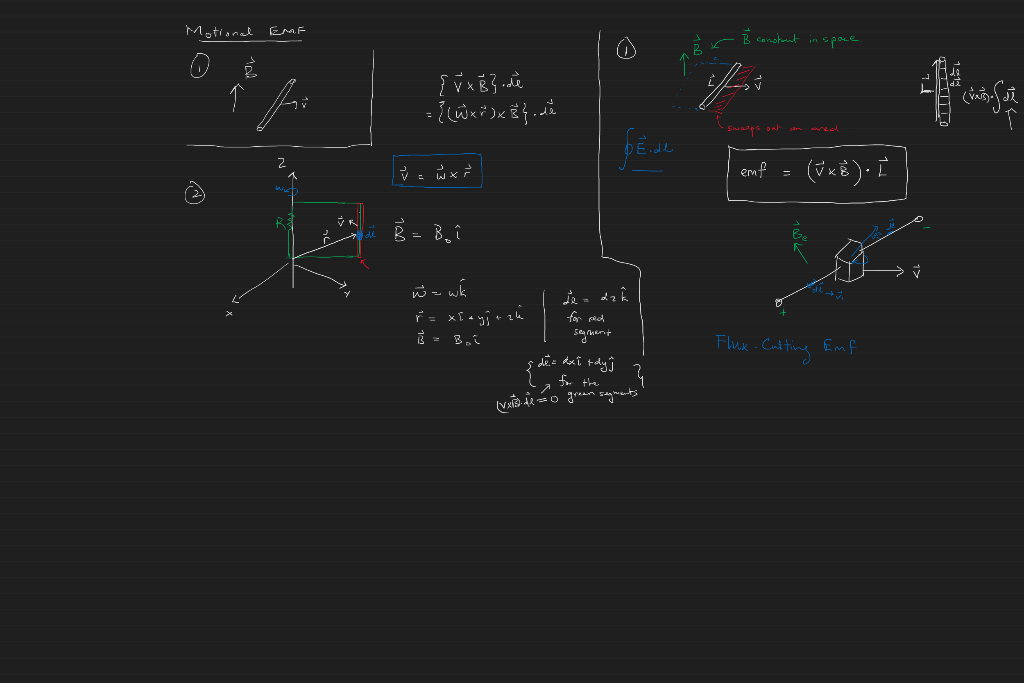 Motional EMF
①
B⃗
v⃗
{ v⃗ × B⃗ } · dl⃗
= {(w⃗ × r⃗) × B⃗} · dl⃗
②
z
w
R
v⃗
r⃗
dl⃗
x
y
v⃗ = w⃗ × r⃗
B⃗ = B₀ î
w⃗ = wk̂
r⃗ = xî + yĵ + zk̂
B⃗ = B₀ î
dl⃗ = dz k̂
for red
segment
{ dl⃗ = dxî + dyĵ }
for the
green segments
(v⃗×B⃗)·dl⃗ = 0
①
B⃗
B⃗ constant in space
L⃗
v⃗
sweeps out an area
∮ E⃗ · dl
emf = (v⃗ × B⃗) · L⃗
L⃗
dl⃗
dl⃗
(v⃗×B⃗)·∫dl⃗
B⃗e
dl⃗
v⃗
-
dl⃗ → v⃗
+
Flux-Cutting Emf